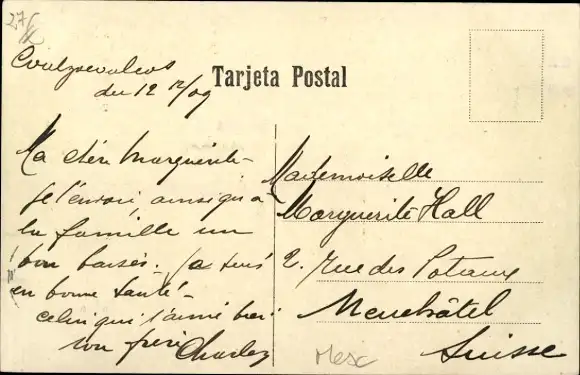 27
Tarjeta Postal
du 12 12/09
Ma chère Marguerite
je t'envoi ainsi qu'a
la famille un
bon baisés. Ja suis
en bonne santé -
celui qui t'aime bien
ton frère Charles
Mademoiselle
Marguerite Hall
2. Rue des Poteaux
Neuchâtel
Suisse
Mesc